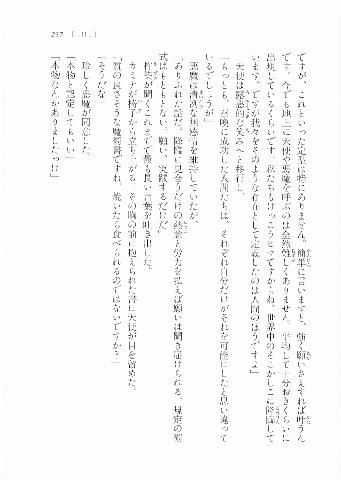 237　［Ⅱ］
ですが、これといった定型は特にありません。簡単に言いますと、強く願いさえすれば叶うん
です。今でも地上に天使や悪魔を呼ぶのは全然難しくありません。平均して十分おきくらいに
出現しているくらいです。私たちもけっこうヒマですからね。世界中のそこかしこに降臨して
います。ですが我々をそのような存在として定義したのは人間のほうですよ」
天使は露悪的な笑みへと移行し、
「もっとも、召喚に成功した人間たちは、それぞれ自分だけがそれを可能にしたと思い違って
いるでしょうが」
悪魔は清冽な無感情を維持していたが、
ありふれた話だ。降臨に見合うだけの熱意と労力を払えば願いは聞き届けられる。規定の術
式はもともとない。願い、実践するだけだ」
梓築が聞くこれまでで最も長い言葉を吐き出した。
カミナが椅子から立ち上がる。その胸の前に抱えられた書に天使が目を留めた。
「質の良さそうな魔術書ですね。焼いたら食べられるのではないですか？」
「そうだな」
珍しく悪魔が同意した。
「本物と認定してもいい」
「本物なんかありましたっけ」